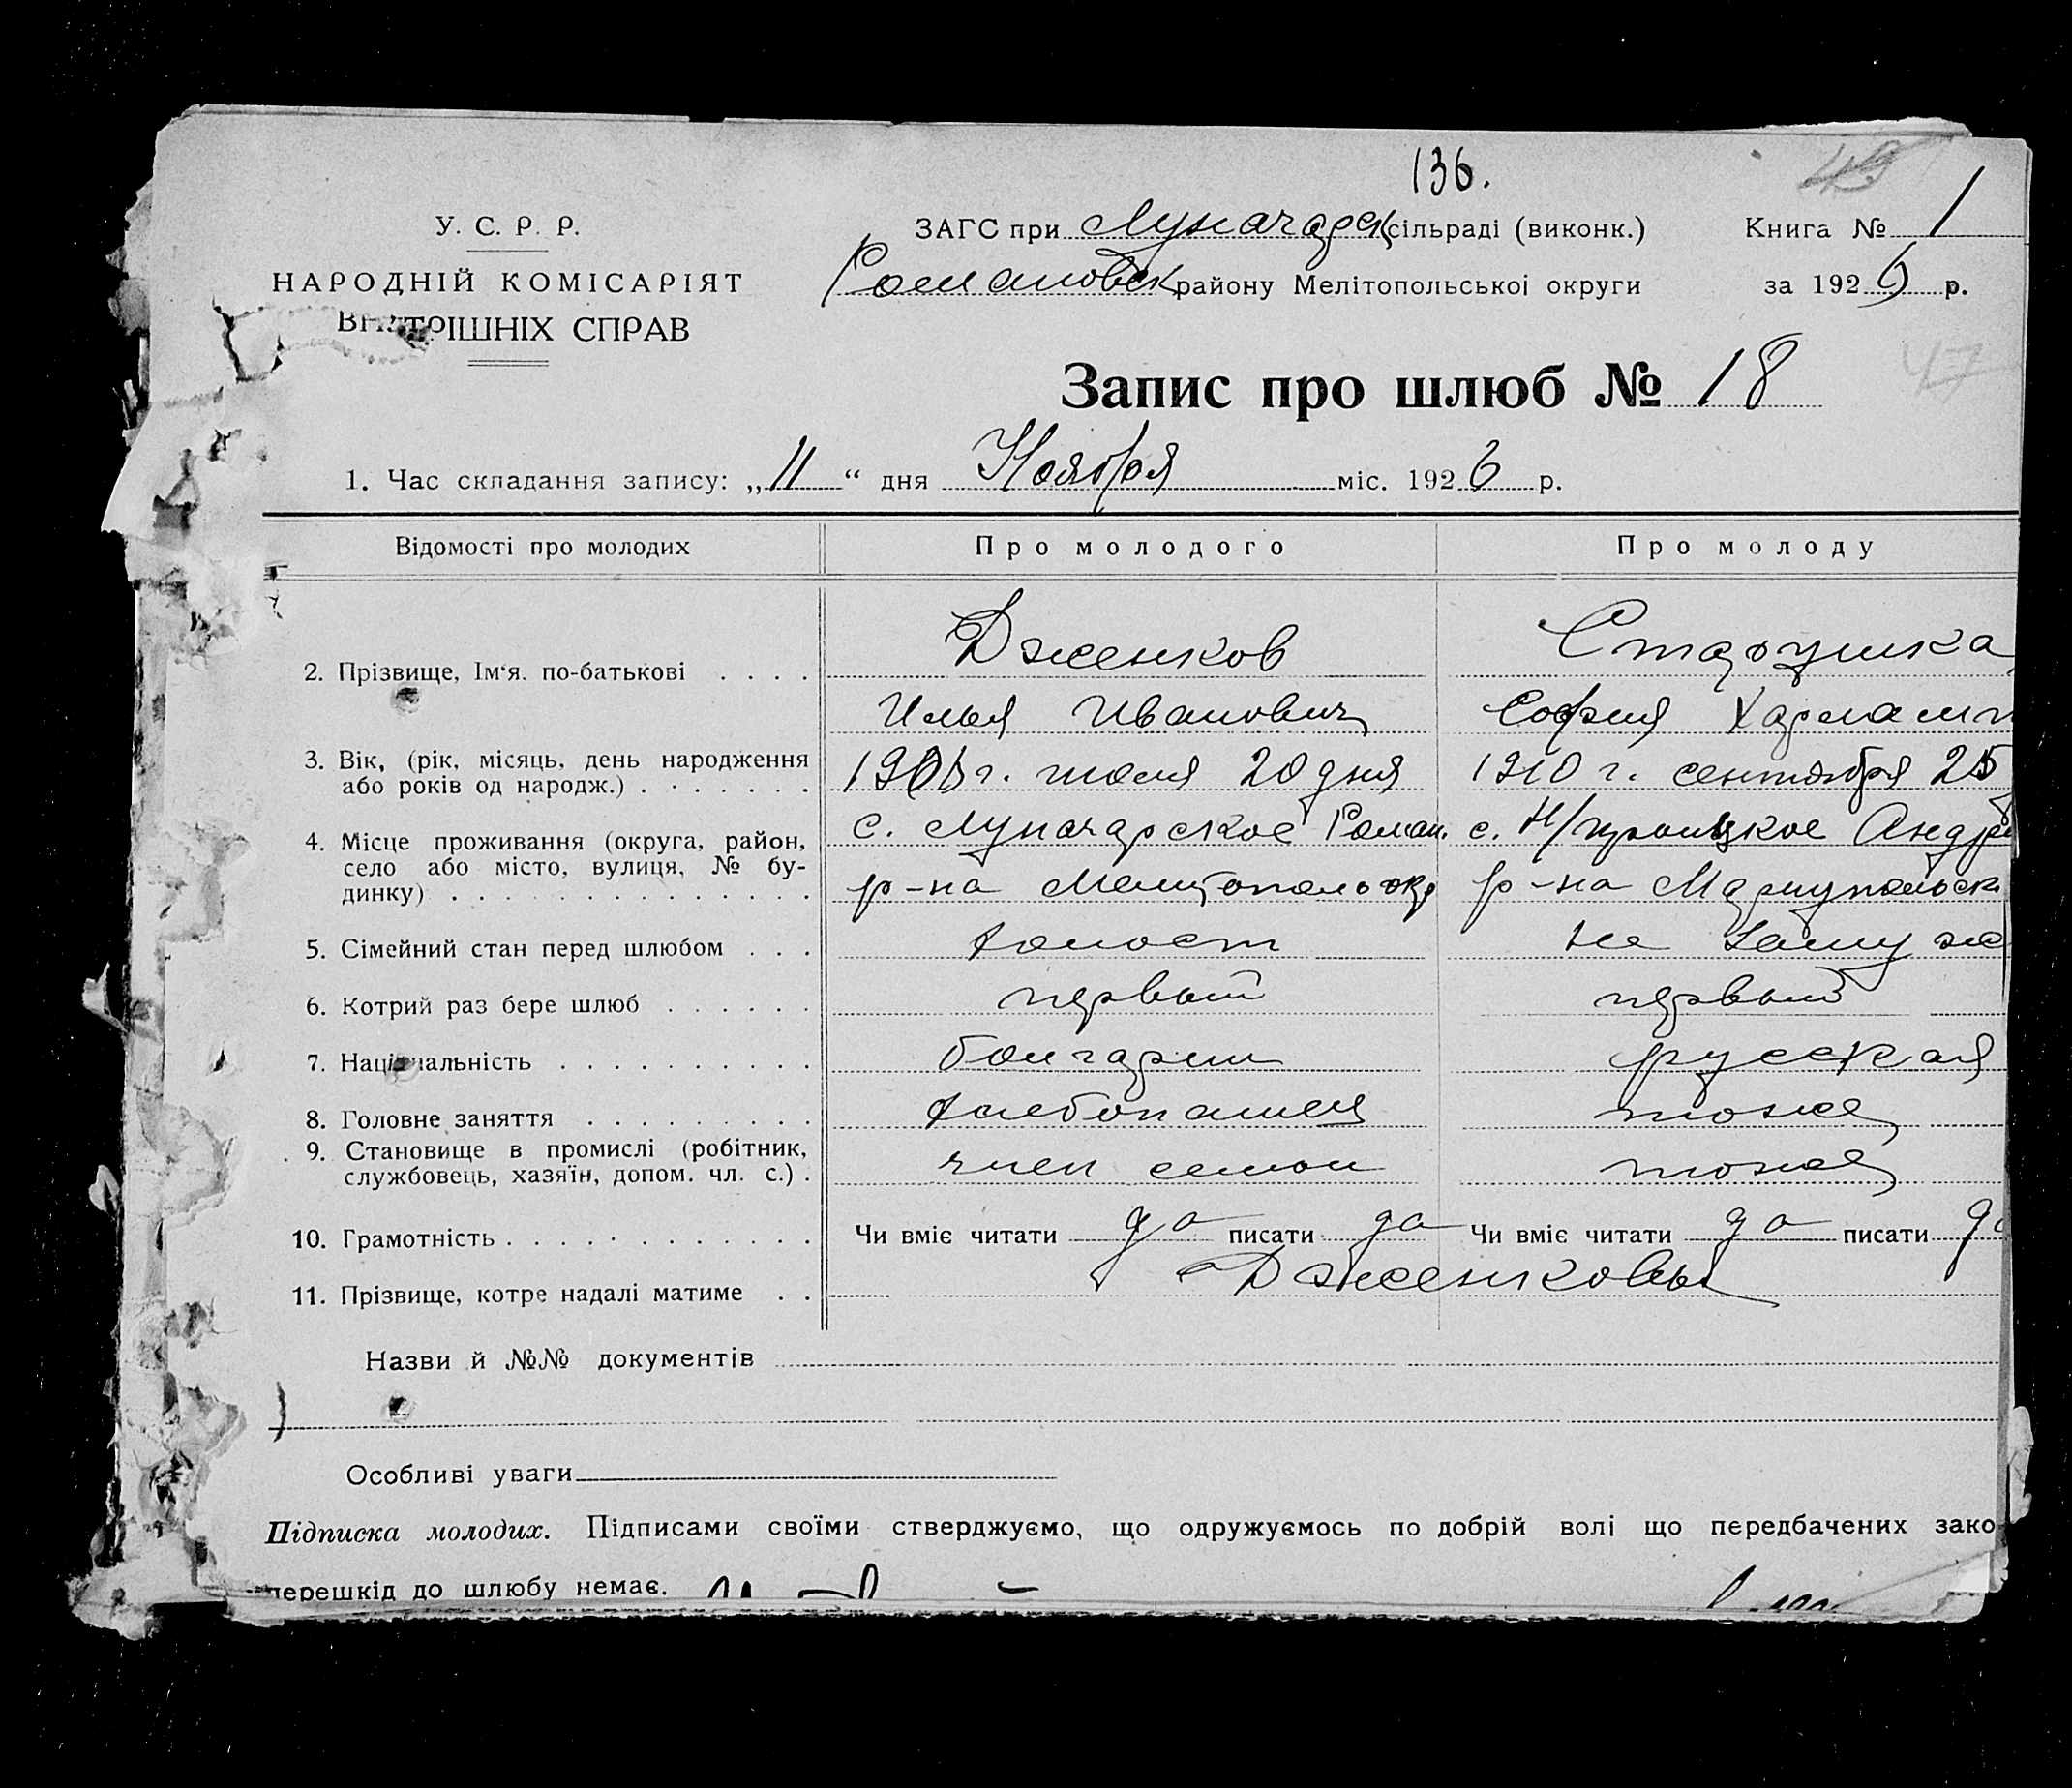 136.
У. С. Р. Р.
НАРОДНІЙ КОМІСАРІЯТ
ВНУТРІШНІХ СПРАВ
ЗАГС при Луначарск сільраді (виконк.)
Романовск району Мелітопольської округи
Книга № 1
за 1926 р.
47
Запис про шлюб № 18
1. Час складання запису: „11“ дня Ноября міс. 1926 р.
Відомості про молодих Про молодого Про молоду
2. Прізвище, Ім‘я, по-батькові . . . . Дженков Старушка
Илья Иванович София Харламп
3. Вік, (рік, місяць, день народження
або років од народж.) . . . . . . . 1906 г. июля 20 дня 1910 г. сентября 25
4. Місце проживання (округа, район,
село або місто, вулиця, № бу-
динку) . . . . . . . . . . . . . .
с. Луначарское Роман. с. Н/троицкое Андре
р-на Мелитополь окр р-на Мариупольск
5. Сімейний стан перед шлюбом . . . холост не замуже
6. Котрий раз бере шлюб . . . . . . первый первый
7. Національність . . . . . . . . . . болгарин русская
8. Головне заняття . . . . . . . . . хлебопашец тоже
9. Становище в промислі (робітник,
службовець, хазяїн, допом. чл. с.) . член семьи тоже
10. Грамотність . . . . . . . . . . . . Чи вміє читати да писати да Чи вміє читати да писати да
11. Прізвище, котре надалі матиме . . Дженковы
Назви й №№ документів
Особливі уваги
Підписка молодих. Підписами своїми стверджуємо, що одружуємось по добрій волі що передбачених зако
перешкід до шлюбу немає.